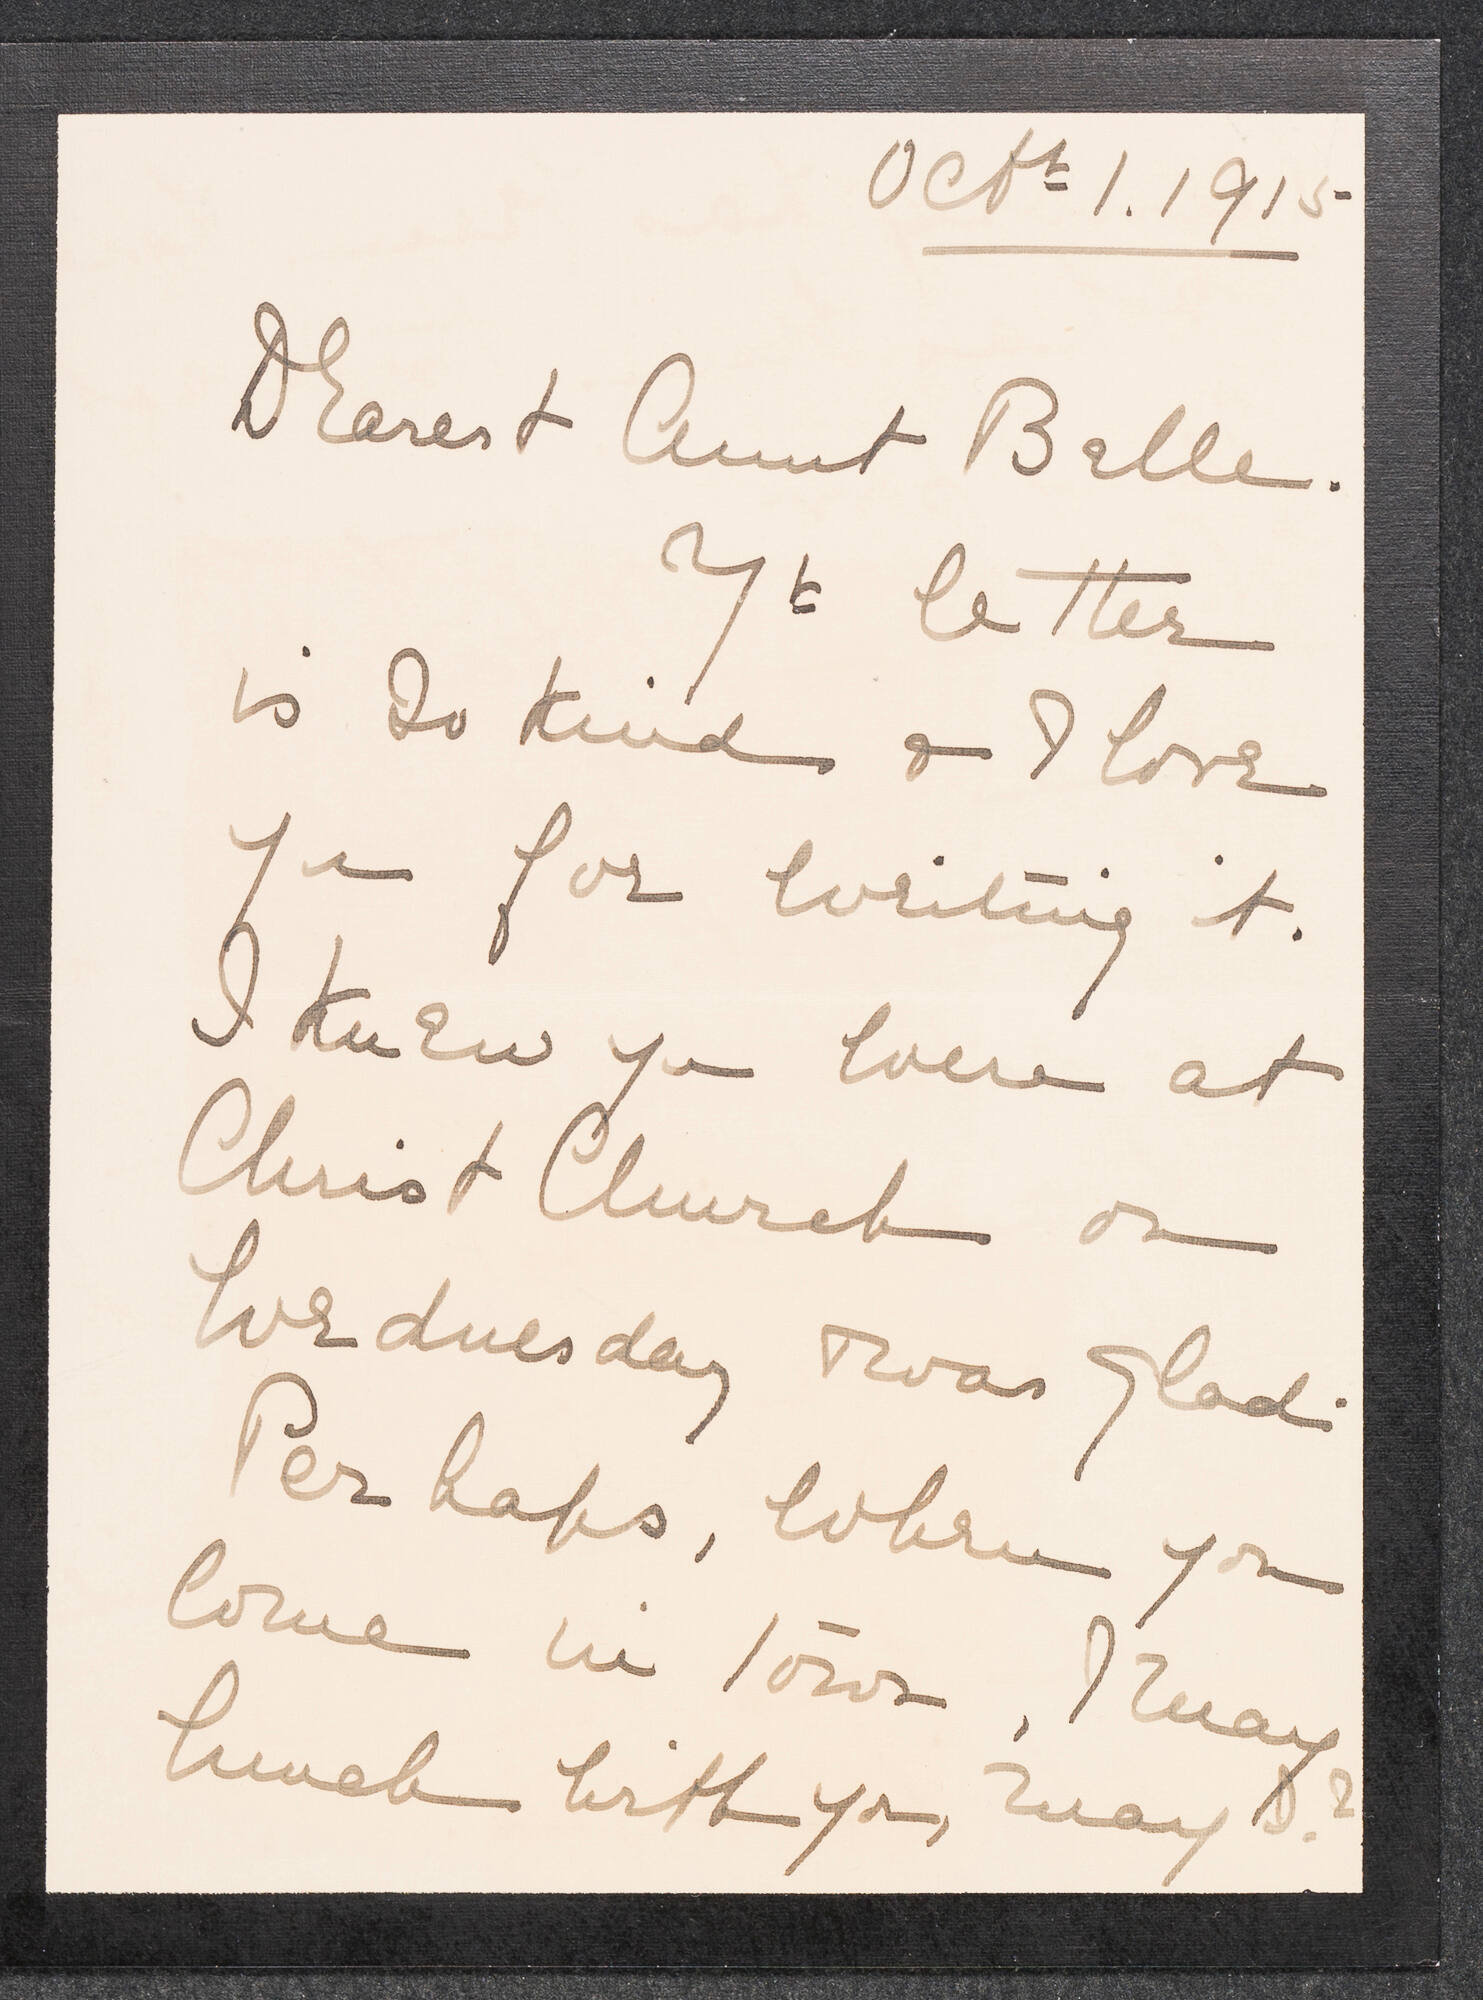 Octbr 1. 1915-
Dearest Aunt Belle.
Yr letter
is so kind & I love
yu for writing it.
I knew yu were at
Christ Church on
Wednesday & was glad.
Perhaps, when you
come in town, I may
lunch with you, may I?